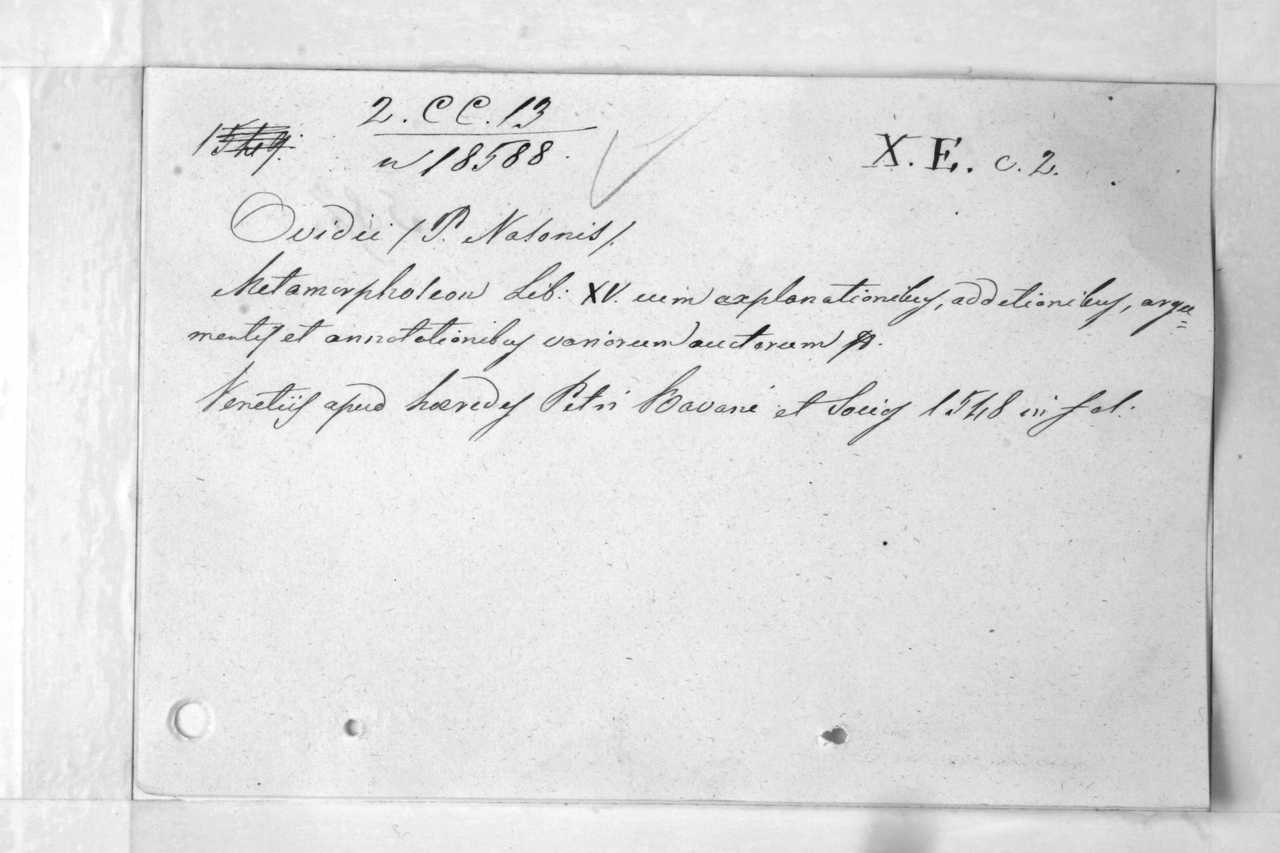 2. CC. 13
n 18588.
X. E. c. 2.
Ovidii (P. Nasonis).
Metamorphoseon Lib: XV. cum explanationibus, additionibus, argu=
mentis et annotationibus variorum auctorum
Venetiis apud hæredes Petri Ravani et Socios 1548 in fol: